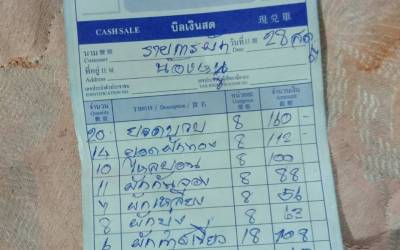 CASH SALE บิลเงินสด 現兌單
นาม Customer รายการผัก วันที่ Date 28
ที่อยู่ Address น้อง
เลขประจำตัวประชาชน
จำนวน Quantity รายการ / Description / 貨名 หน่วยละ Unitprice จำนวนเงิน Amount
20 ยอดบวบ 8 160 -
14 ยอดฟักทอง 8 112 -
10 8 100
11 ผักกันจอง 8 88
7 ผักเหลียง 8 56
8 ผักบุ้ง 8 63
6 ผักกาดเขียว 18 108